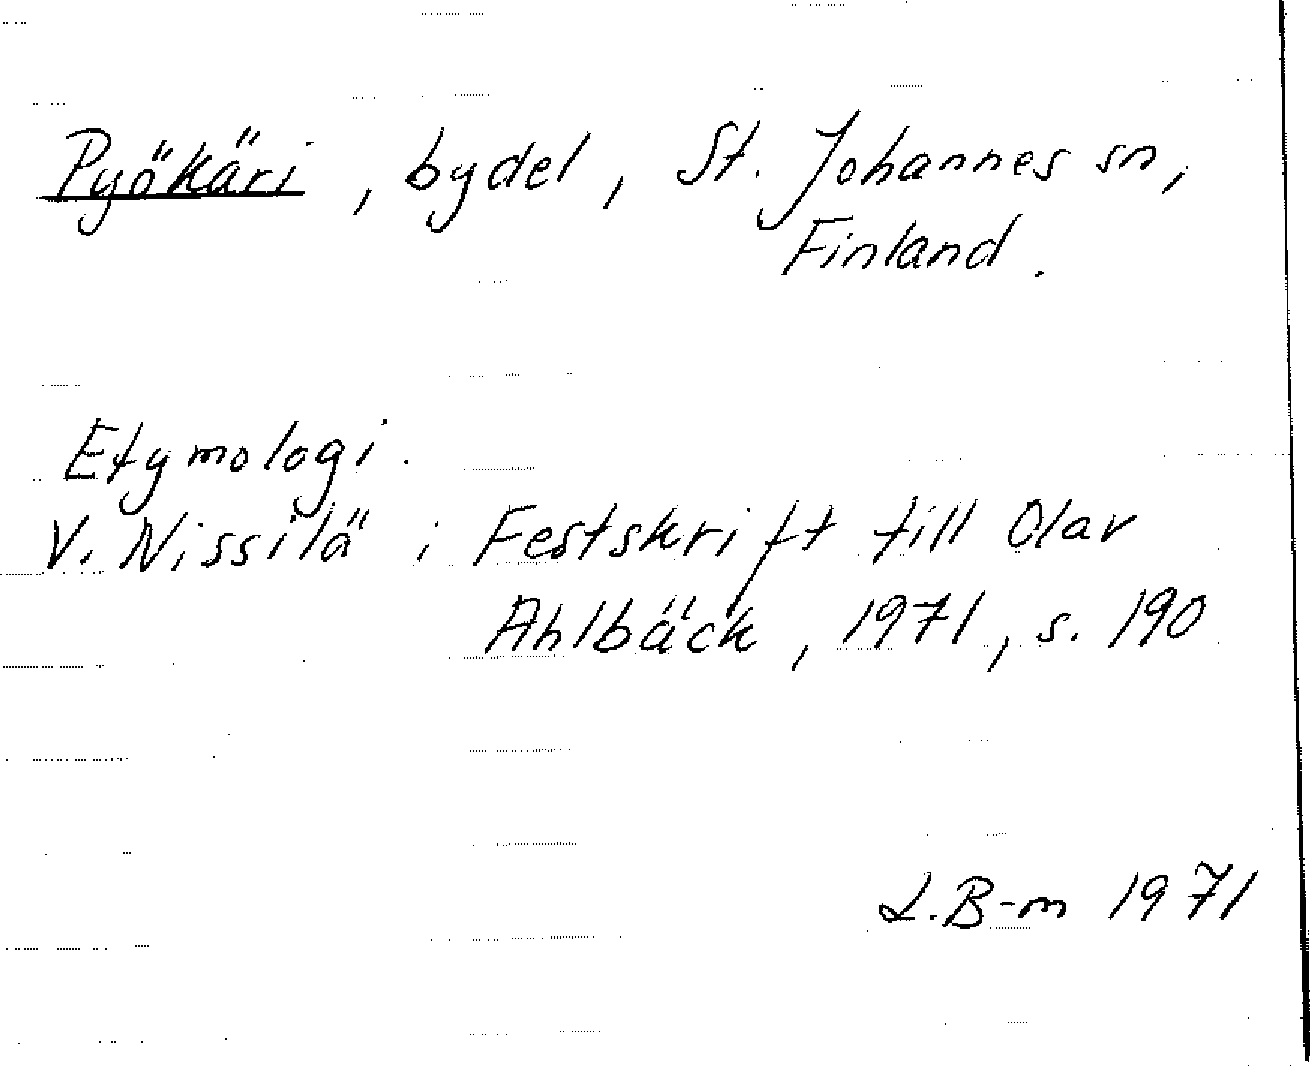 Pyökäri, bydel, St. Johannes sn,
Finland.
Etymologi.
V. Nissilä i Festskrift till Olav
Ahlbäck, 1971, s. 190
L.B-m 1971